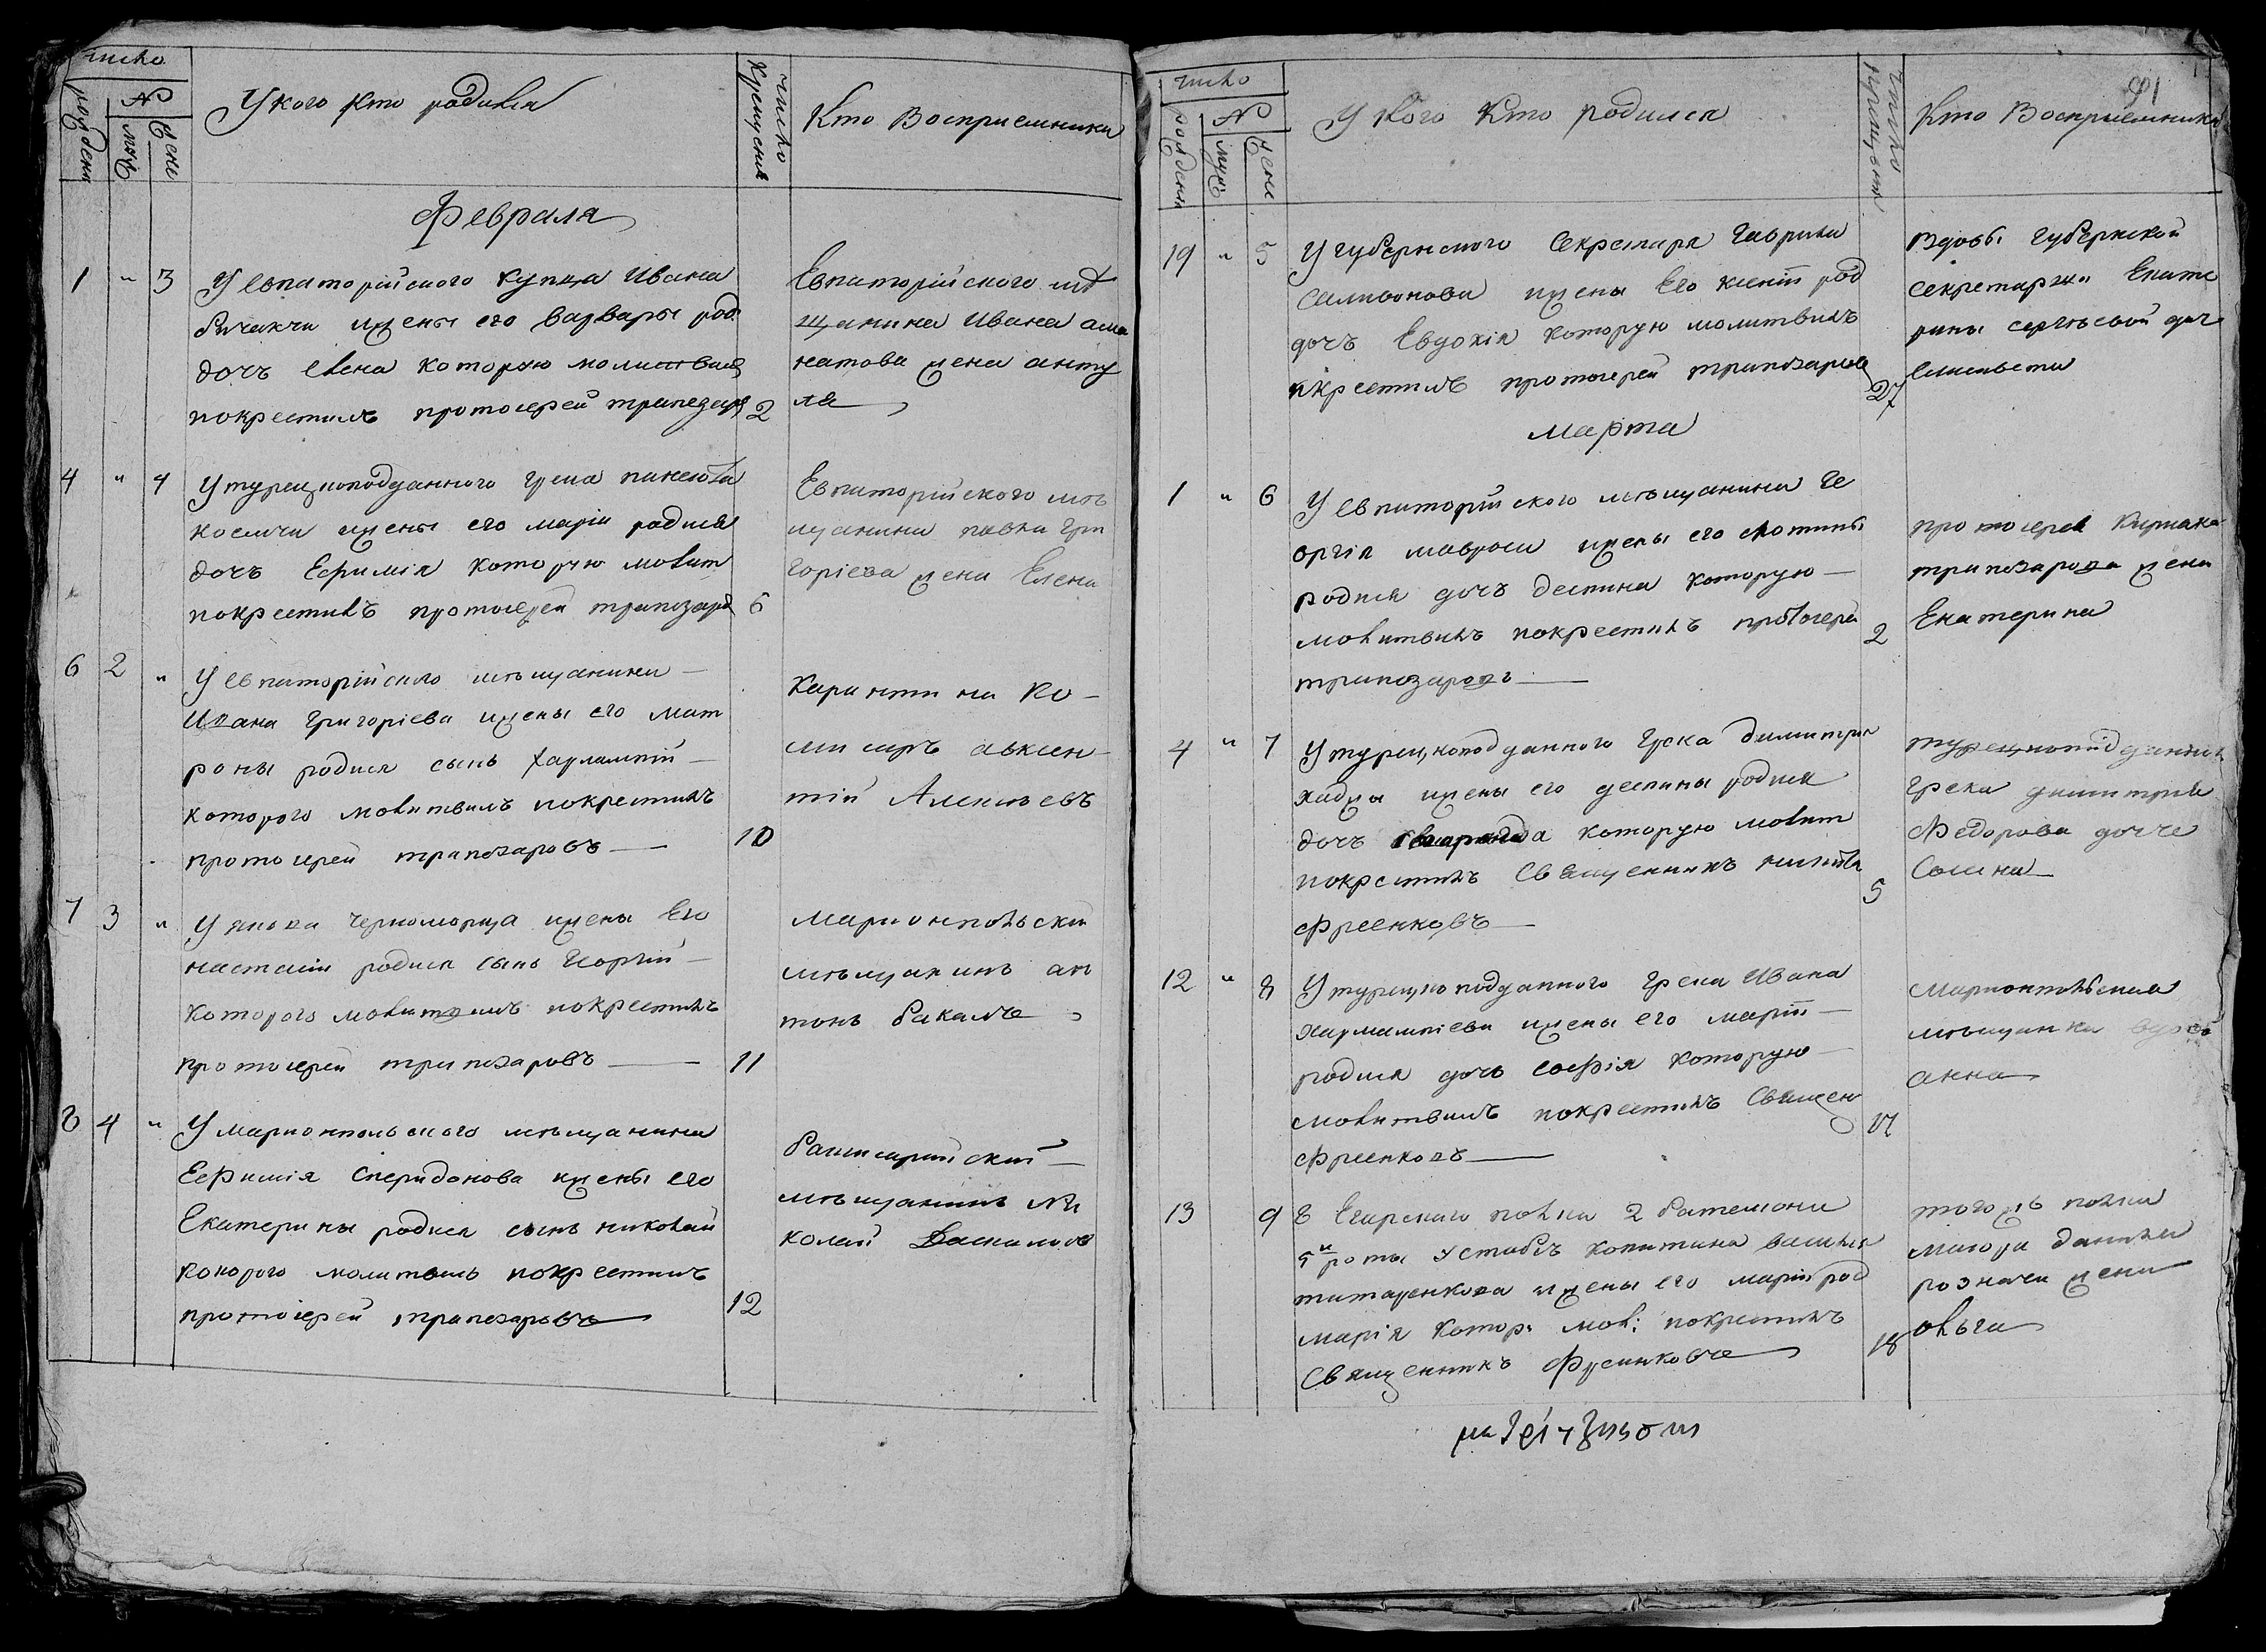 число
рождения
№
муж
жен
У кого кто родился
число
крещения
Кто Восприемники
Февраля
1 " 3 У евпаторійского купца Ивана
Бичакчи ижены его Варвары род:
дочь елена которую молитвилъ
покрестилъ протоіерей трапезаръ 2
Евпаторійского мѣ
щанина Ивана ама
натова жена анту
ла
4 " 4 У турецкоподданного грека панеіота
космичи ижены его маріи родися
дочь Ефимія которую молит
покрестилъ протоіерей трапозаръ 6
Евпаторійского мѣ
щанина павла гри
горіева жена Елена
6 2 " У евпаторійскаго мѣщанина
Ивана Григоріева ижены его мат
роны родися сынъ харлампій
которого молитвилъ покрестилъ
протоіерей трапозаровъ 10
Карантина Ко-
мисаръ авксен-
тій Алексѣевъ
7 3 " У якова черноморца ижены Его
настасіи родися сынъ Георгій
которого молитвилъ покрестилъ
протоіерей трапозаровъ 11
маріонпольскій
мѣщанинъ ан
тонъ бакалъ
8 4 " У маріонпольского мѣщанина
Ефимія Спиридонова ижены его
Екатерины родися сынъ николай
которого молитвилъ покрестилъ
протоіерей трапезаровъ 12
мѣщанинъ Ни
колай Даскаловъ
91
число
рождения
№
муж
жен
У кого кто родился
число
крещения
Кто Восприемники
19 " 5 У губернского Секретаря Гаврила
Саливонова ижены Его ксеніи род
дочь Евдокія которую молитвилъ
покрестилъ протоіерей трапозаровъ 27
вдовы губернской
секретарши Екате
рины сергѣевой дочь
елисавета
марта
1 " 6 У евпаторійского мѣщанина Ге
оргія мавроси ижены его фотины
родися дочь деспина которую
молитвилъ покрестилъ протоіерей 2
трапозаровъ
протоіерея Кириака
трапозарова жена
Екатерина
4 " 7 У турецкоподданного грека димитрія
хаджи ижены его деспины родися
дочь которую молит
покрестилъ священникъ никита 5
Фреенковъ
турецкоподданнаго
грека димитрія
Федорова дочь
12 " 8 У турецкоподданного грека Ивана
харлампіева ижены его маріи
родися дочь софія которую
молитвилъ покрестилъ священ 17
Фреенковъ
маріонпольская
мѣщанка вдова
анна
13 9 8 Егарского полка 2 баталіона
5й роты У стабсъ капитана василія
титаренкова ижены его маріи род
марія котор: мол: покрестилъ
Священникъ Фреенковъ 18
тогожъ полка
маіора данила
розначи жена
ольга